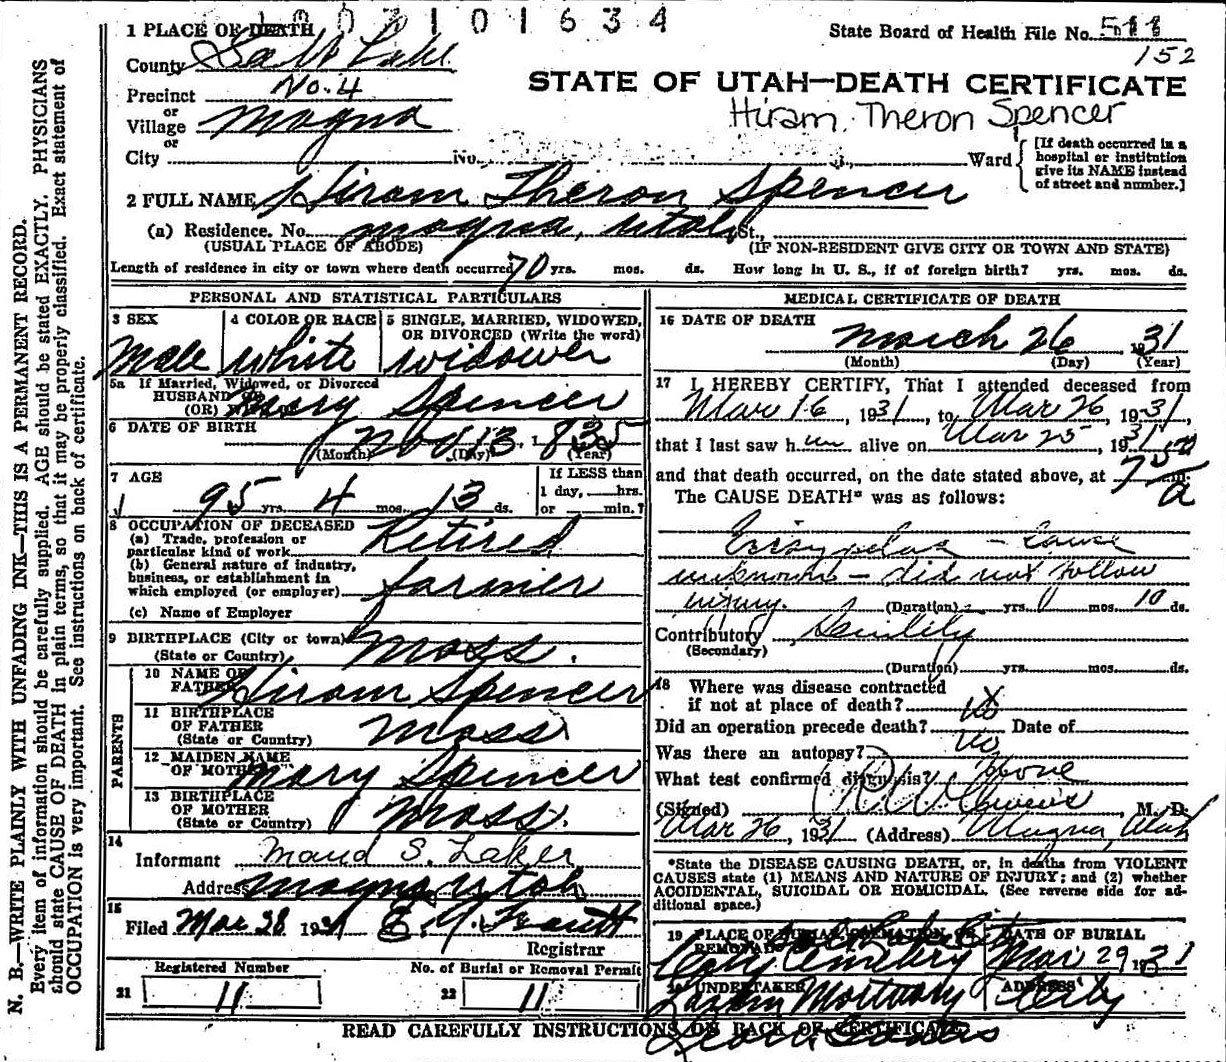 1003101634
1 PLACE OF DEATH
State Board of Health File No. 511
152
County Salt Lake
Precinct No. 4
or
Village Magna
or
City No. Ward
[If death occurred in a hospital or institution give its NAME instead of street and number.]
STATE OF UTAH—DEATH CERTIFICATE
Hiram Theron Spencer
2 FULL NAME Hiram Theron Spencer
(a) Residence. No. Magna, Utah St.,
(USUAL PLACE OF ABODE) (IF NON-RESIDENT GIVE CITY OR TOWN AND STATE)
Length of residence in city or town where death occurred 70 yrs. mos. ds. How long in U. S., if of foreign birth? yrs. mos. ds.
PERSONAL AND STATISTICAL PARTICULARS
3 SEX Male
4 COLOR OR RACE white
5 SINGLE, MARRIED, WIDOWED, OR DIVORCED (Write the word) widower
5a If Married, Widowed, or Divorced
HUSBAND OF
(OR) Mary Spencer
6 DATE OF BIRTH Nov 13, 1835
(Month) (Day) (Year)
7 AGE
95 yrs. 4 mos. 13 ds.
If LESS than
1 day, hrs.
or min.?
8 OCCUPATION OF DECEASED
(a) Trade, profession or
particular kind of work Retired
(b) General nature of industry,
business, or establishment in
which employed (or employer) farmer
(c) Name of Employer
9 BIRTHPLACE (City or town)
(State or Country) Mass.
PARENTS
10 NAME OF
FATHER Hiram Spencer
11 BIRTHPLACE
OF FATHER
(State or Country) Mass
12 MAIDEN NAME
OF MOTHER Mary Spencer
13 BIRTHPLACE
OF MOTHER
(State or Country) Mass.
14
Informant Maud S. Laker
Address Magna, Utah
15
Filed Mar 28 1931
Registrar
Registered Number
21 11
No. of Burial or Removal Permit
22 11
MEDICAL CERTIFICATE OF DEATH
16 DATE OF DEATH
March 26 1931
(Month) (Day) (Year)
17 I HEREBY CERTIFY, That I attended deceased from
Mar 16, 1931, to Mar 26, 1931,
that I last saw him alive on Mar 25, 1931,
and that death occurred, on the date stated above, at 7 a m.
The CAUSE DEATH* was as follows:
Erisypelas - Cause
unknown - did not follow
injury.
(Duration) yrs. mos. 10 ds.
Contributory Senility
(Secondary)
(Duration) yrs. mos. ds.
18 Where was disease contracted
if not at place of death?
Did an operation precede death? No Date of
Was there an autopsy? No
What test confirmed diagnosis? None
(Signed) M. D.
Mar 26, 1931 (Address) Magna, Utah
*State the DISEASE CAUSING DEATH, or, in deaths from VIOLENT
CAUSES state (1) MEANS AND NATURE OF INJURY; and (2) whether
ACCIDENTAL, SUICIDAL OR HOMICIDAL. (See reverse side for ad-
ditional space.)
19 PLACE OF BURIAL, CREMATION OR REMOVAL Salt Lake City
City Cemetery
DATE OF BURIAL
Mar 29 1931
20 UNDERTAKER
Larkin Mortuary
ADDRESS
City
READ CAREFULLY INSTRUCTIONS ON BACK OF CERTIFICATE
N. B.—WRITE PLAINLY WITH UNFADING INK—THIS IS A PERMANENT RECORD.
Every item of information should be carefully supplied. AGE should be stated EXACTLY. PHYSICIANS
should state CAUSE OF DEATH in plain terms, so that it may be properly classified. Exact statement of
OCCUPATION is very important. See instructions on back of certificate.